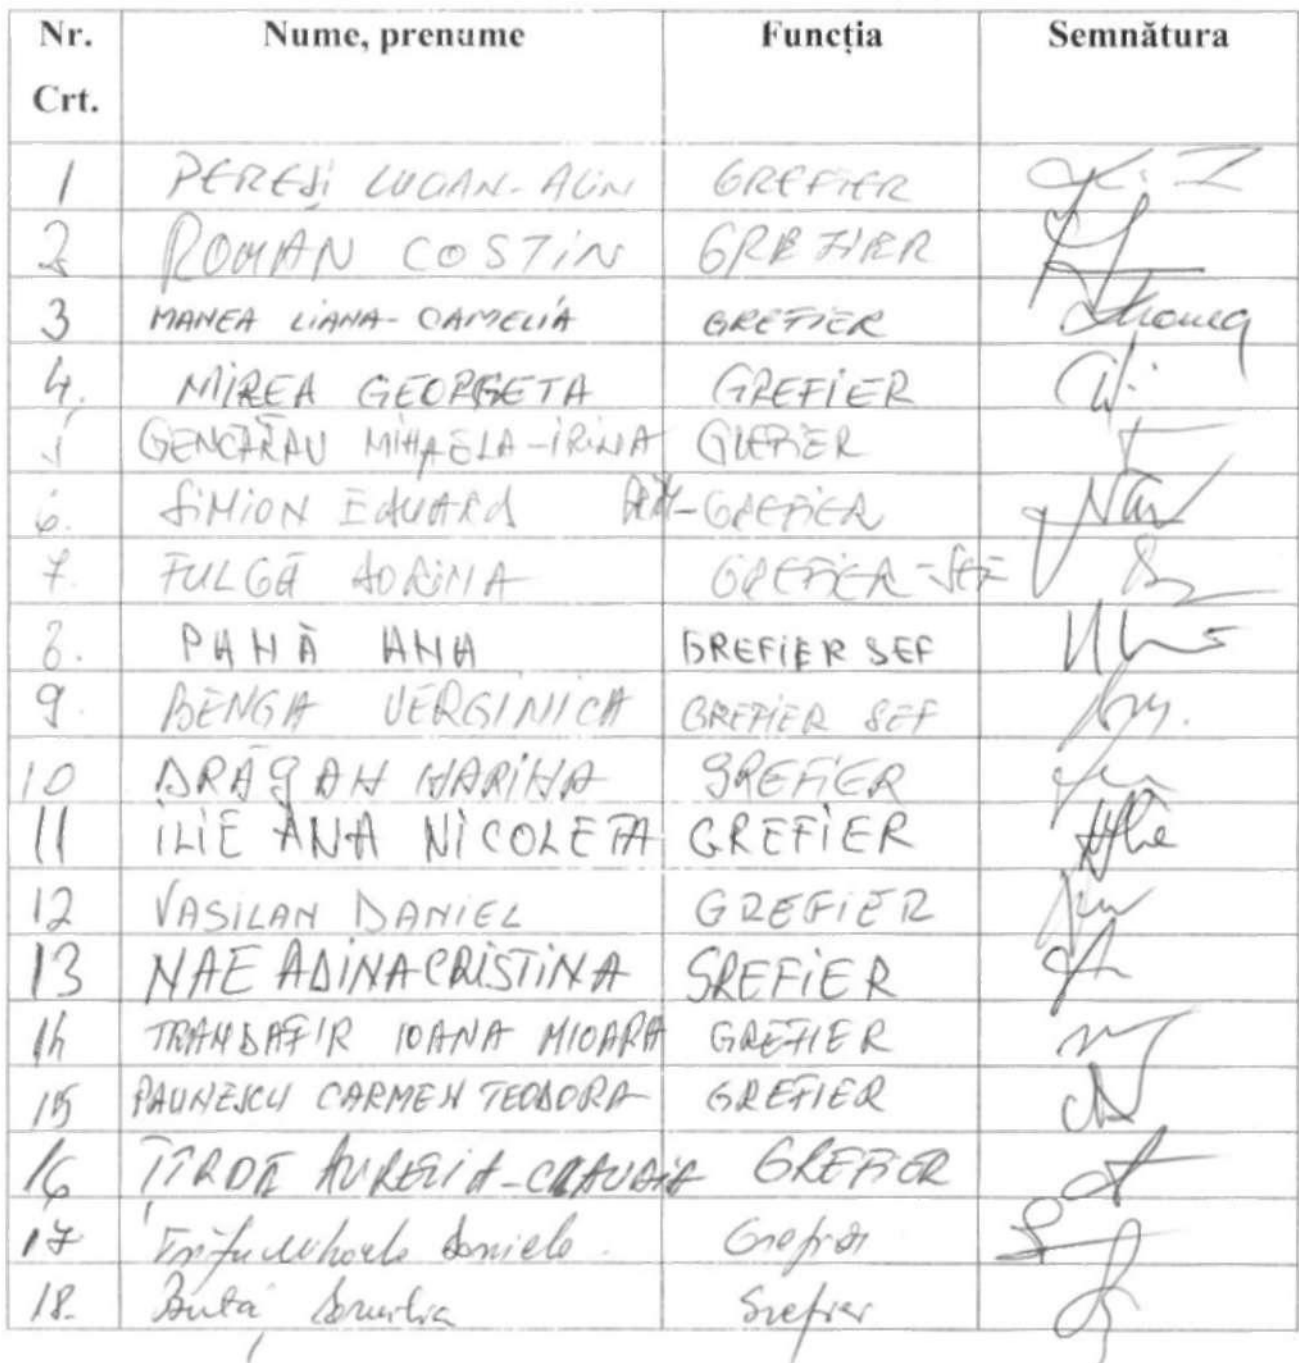 Nr. Crt. Nume, prenume Funcția Semnătura
1 PEREȘI LUCIAN-ALIN GREFIER
2 ROMAN COSTIN GREFIER
3 MANEA LIANA-CAMELIA GREFIER
4. MIREA GEORGETA GREFIER
GENCĂRĂU MIHAELA-IRINA GREFIER
6. SIMION EDUARD GREFIER
7. FULGĂ ADRINA GREFIER-ȘEF
8. PANĂ ANA GREFIER SEF
9. BENGA VERGINICA GREFIER SEF
10 DRĂGAN MARINA GREFIER
11 ILIE ANA NICOLETA GREFIER
12 VASILAN DANIEL GREFIER
13 NAE ADINA CRISTINA GREFIER
14 TRANDAFIR IOANA MIOARA GREFIER
15 PAUNESCU CARMEN TEODORA GREFIER
16 AURELIA-CLAUDIA GREFIER
17 Trifu Mihaela Daniela Grefier
18. Grefier